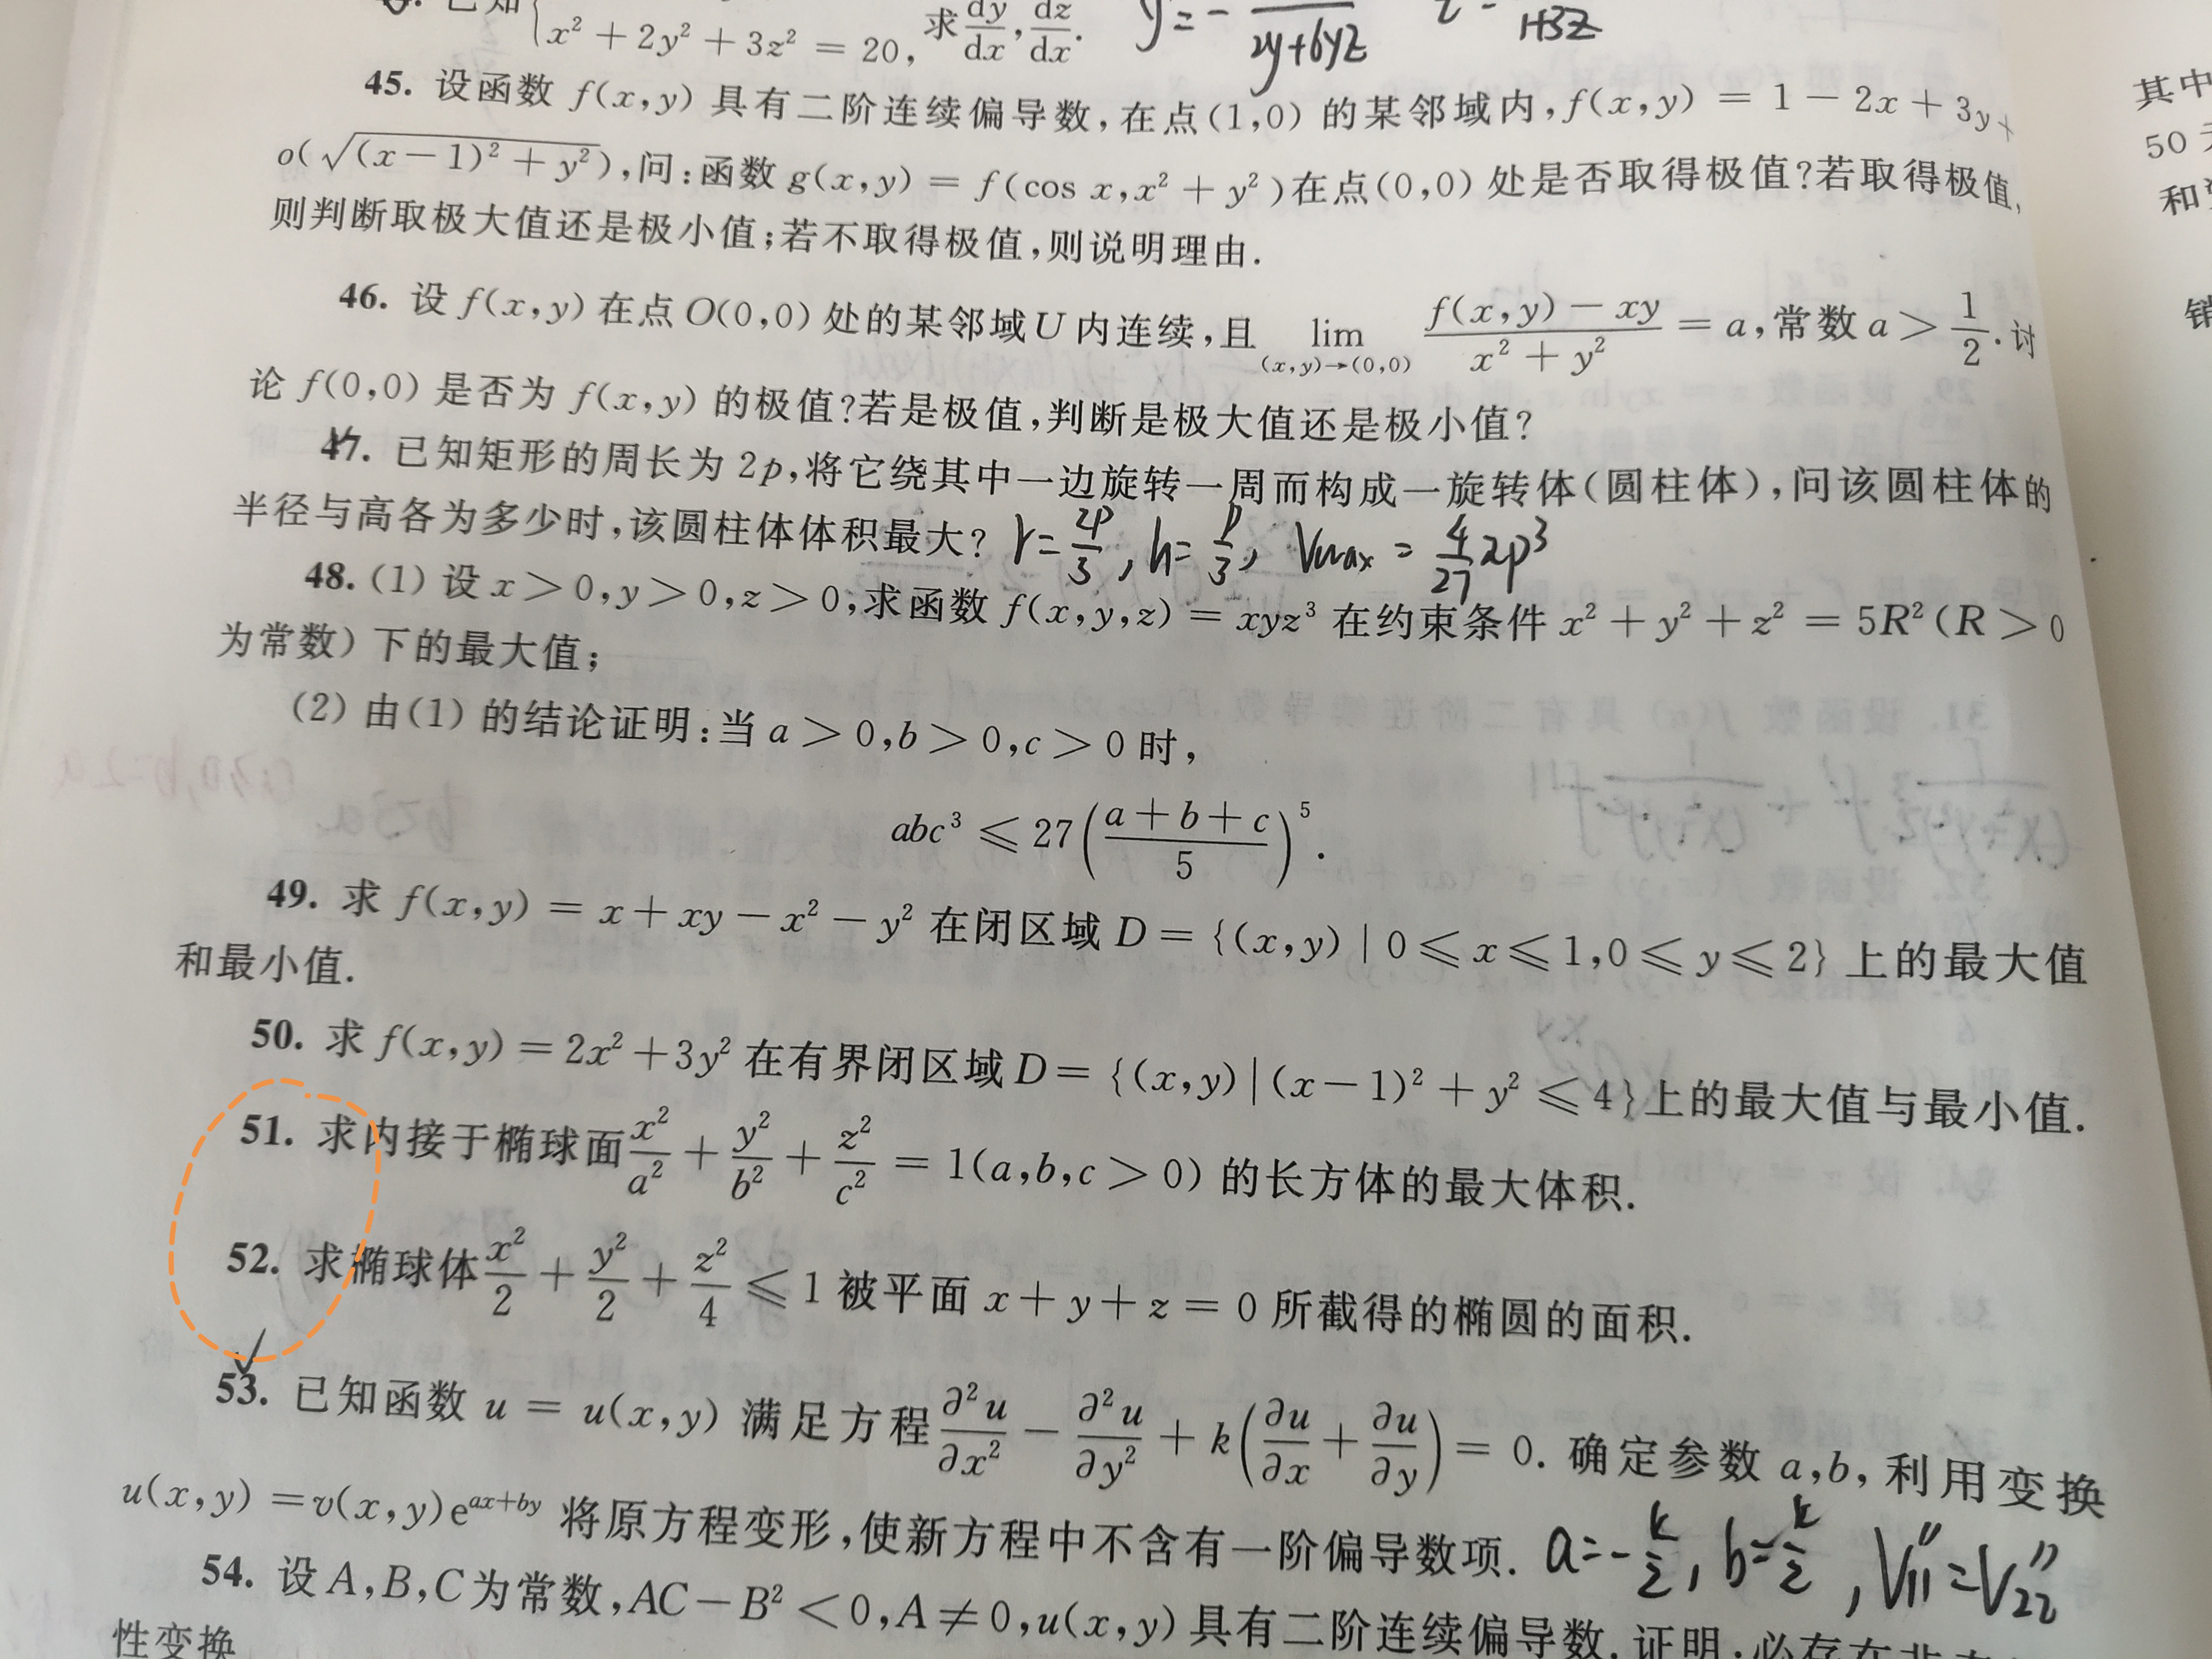 已知{x² + 2y² + 3z² = 20, 求 dy/dx, dz/dx. y' = - /(2y+6yz) z' = /(1+3z)
45. 设函数 f(x,y) 具有二阶连续偏导数,在点(1,0) 的某邻域内,f(x,y) = 1 − 2x + 3y +
o(√((x−1)² + y²)),问:函数 g(x,y) = f(cos x,x² + y²)在点(0,0) 处是否取得极值?若取得极值,
则判断取极大值还是极小值;若不取得极值,则说明理由.
46. 设 f(x,y) 在点 O(0,0) 处的某邻域 U 内连续,且 lim_{(x,y)→(0,0)} (f(x,y) − xy)/(x² + y²) = a,常数 a > 1/2. 讨
论 f(0,0) 是否为 f(x,y) 的极值?若是极值,判断是极大值还是极小值?
47. 已知矩形的周长为 2p,将它绕其中一边旋转一周而构成一旋转体(圆柱体),问该圆柱体的
半径与高各为多少时,该圆柱体体积最大? r = 2p/3, h = p/3, Vmax = 4/27 πp³
48. (1) 设 x > 0,y > 0,z > 0,求函数 f(x,y,z) = xyz³ 在约束条件 x² + y² + z² = 5R² (R > 0
为常数) 下的最大值;
(2) 由(1) 的结论证明:当 a > 0,b > 0,c > 0 时,
abc³ ⩽ 27((a + b + c)/5)⁵.
49. 求 f(x,y) = x + xy − x² − y² 在闭区域 D = {(x,y) | 0 ⩽ x ⩽ 1,0 ⩽ y ⩽ 2} 上的最大值
和最小值.
50. 求 f(x,y) = 2x² + 3y² 在有界闭区域 D = {(x,y) | (x−1)² + y² ⩽ 4} 上的最大值与最小值.
51. 求内接于椭球面 x²/a² + y²/b² + z²/c² = 1(a,b,c > 0) 的长方体的最大体积.
52. 求椭球体 x²/2 + y²/2 + z²/4 ⩽ 1 被平面 x + y + z = 0 所截得的椭圆的面积.
53. 已知函数 u = u(x,y) 满足方程 ∂²u/∂x² − ∂²u/∂y² + k(∂u/∂x + ∂u/∂y) = 0. 确定参数 a,b, 利用变换
u(x,y) = v(x,y)e^{ax+by} 将原方程变形,使新方程中不含有一阶偏导数项. a = −k/2, b = k/2, V₁₁″ = V₂₂″
54. 设 A,B,C 为常数,AC − B² < 0,A ≠ 0,u(x,y) 具有二阶连续偏导数. 证明:必存在非
性变换
其中
50
和
销